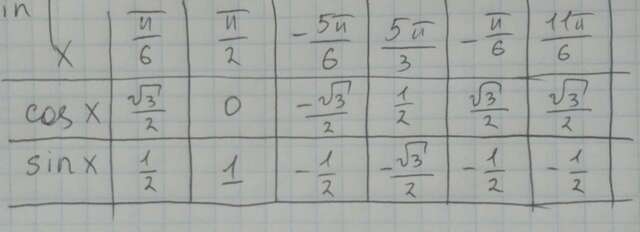 in
x π/6 π/2 -5π/6 5π/3 -π/6 11π/6
cos x √3/2 0 -√3/2 1/2 √3/2 √3/2
sin x 1/2 1 -1/2 -√3/2 -1/2 -1/2